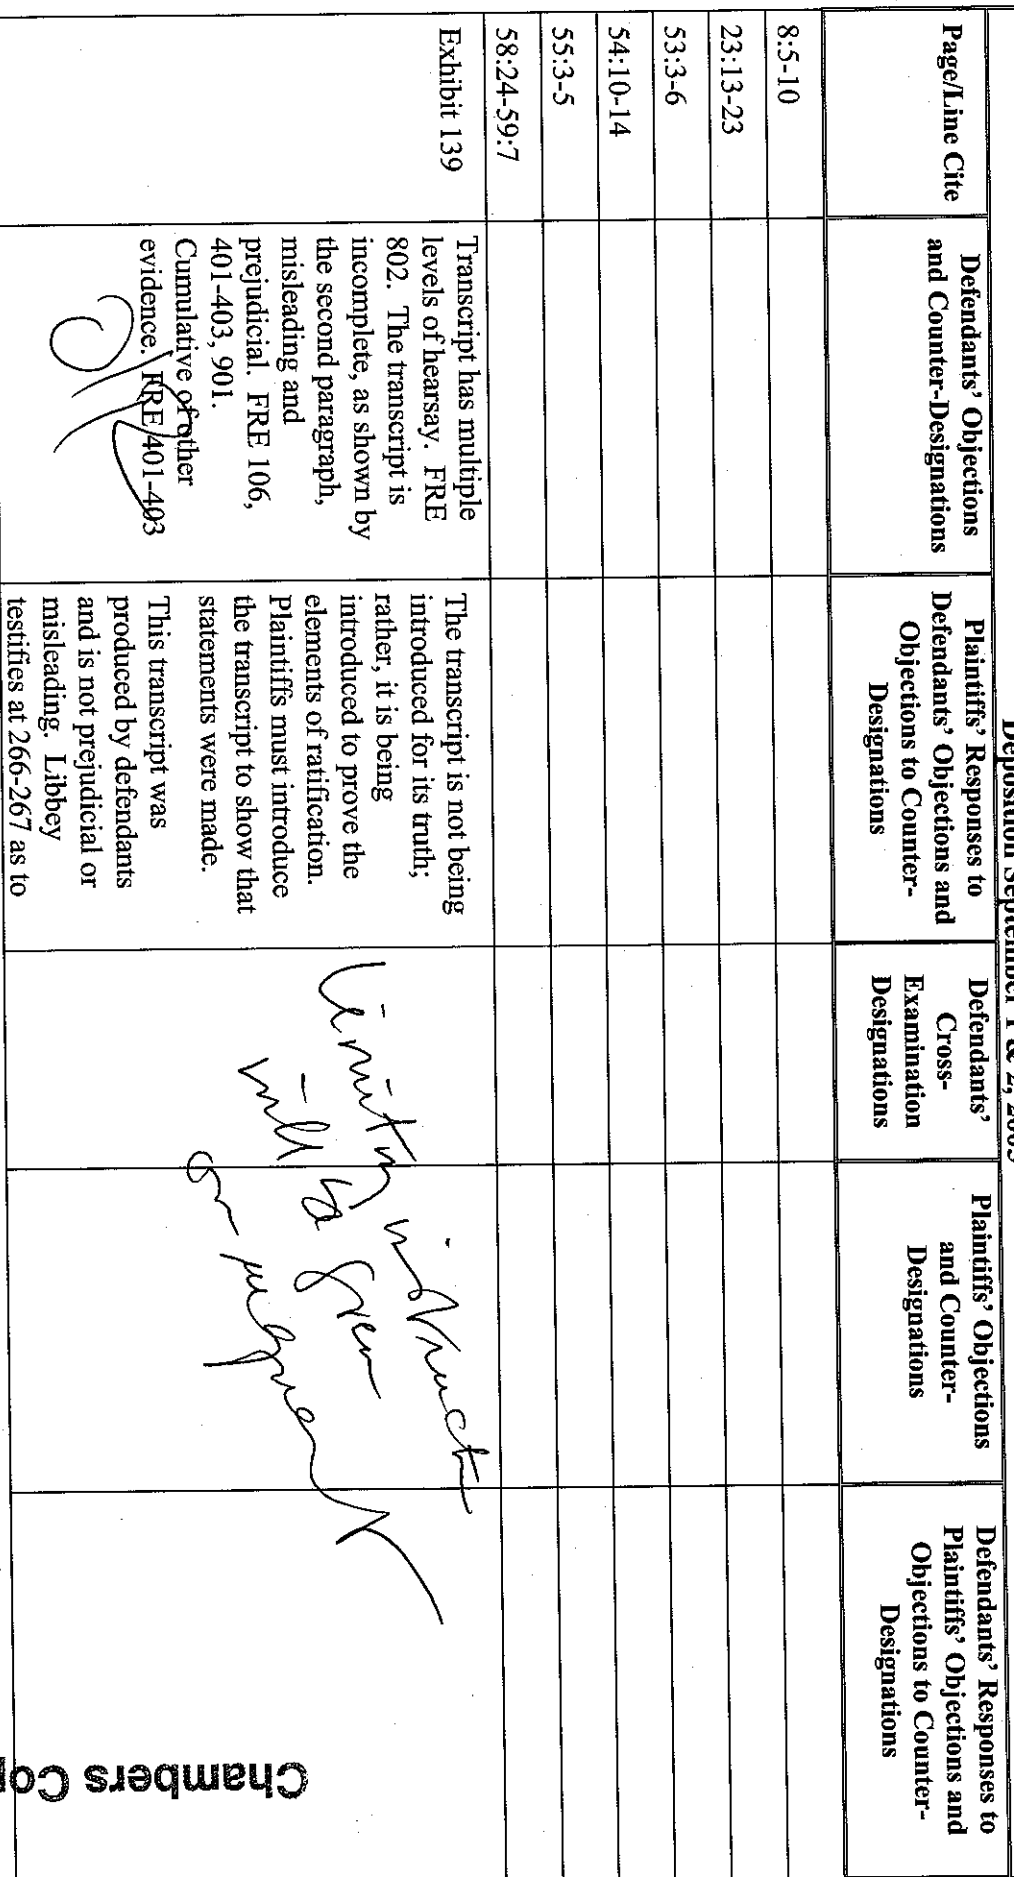 Deposition September 1 & 2, 2005
Page/Line Cite
Defendants' Objections
and Counter-Designations
Plaintiffs' Responses to
Defendants' Objections and
Objections to Counter-
Designations
Defendants'
Cross-
Examination
Designations
Plaintiffs' Objections
and Counter-
Designations
Defendants' Responses to
Plaintiffs' Objections and
Objections to Counter-
Designations
8:5-10
23:13-23
53:3-6
54:10-14
55:3-5
58:24-59:7
Exhibit 139
Transcript has multiple
levels of hearsay. FRE
802. The transcript is
incomplete, as shown by
the second paragraph,
misleading and
prejudicial. FRE 106,
401-403, 901.
Cumulative of other
evidence. FRE 401-403
The transcript is not being
introduced for its truth;
rather, it is being
introduced to prove the
elements of ratification.
Plaintiffs must introduce
the transcript to show that
statements were made.
This transcript was
produced by defendants
and is not prejudicial or
misleading. Libbey
testifies at 266-267 as to
Limiting instruct
will be given
on request
Chambers Cop